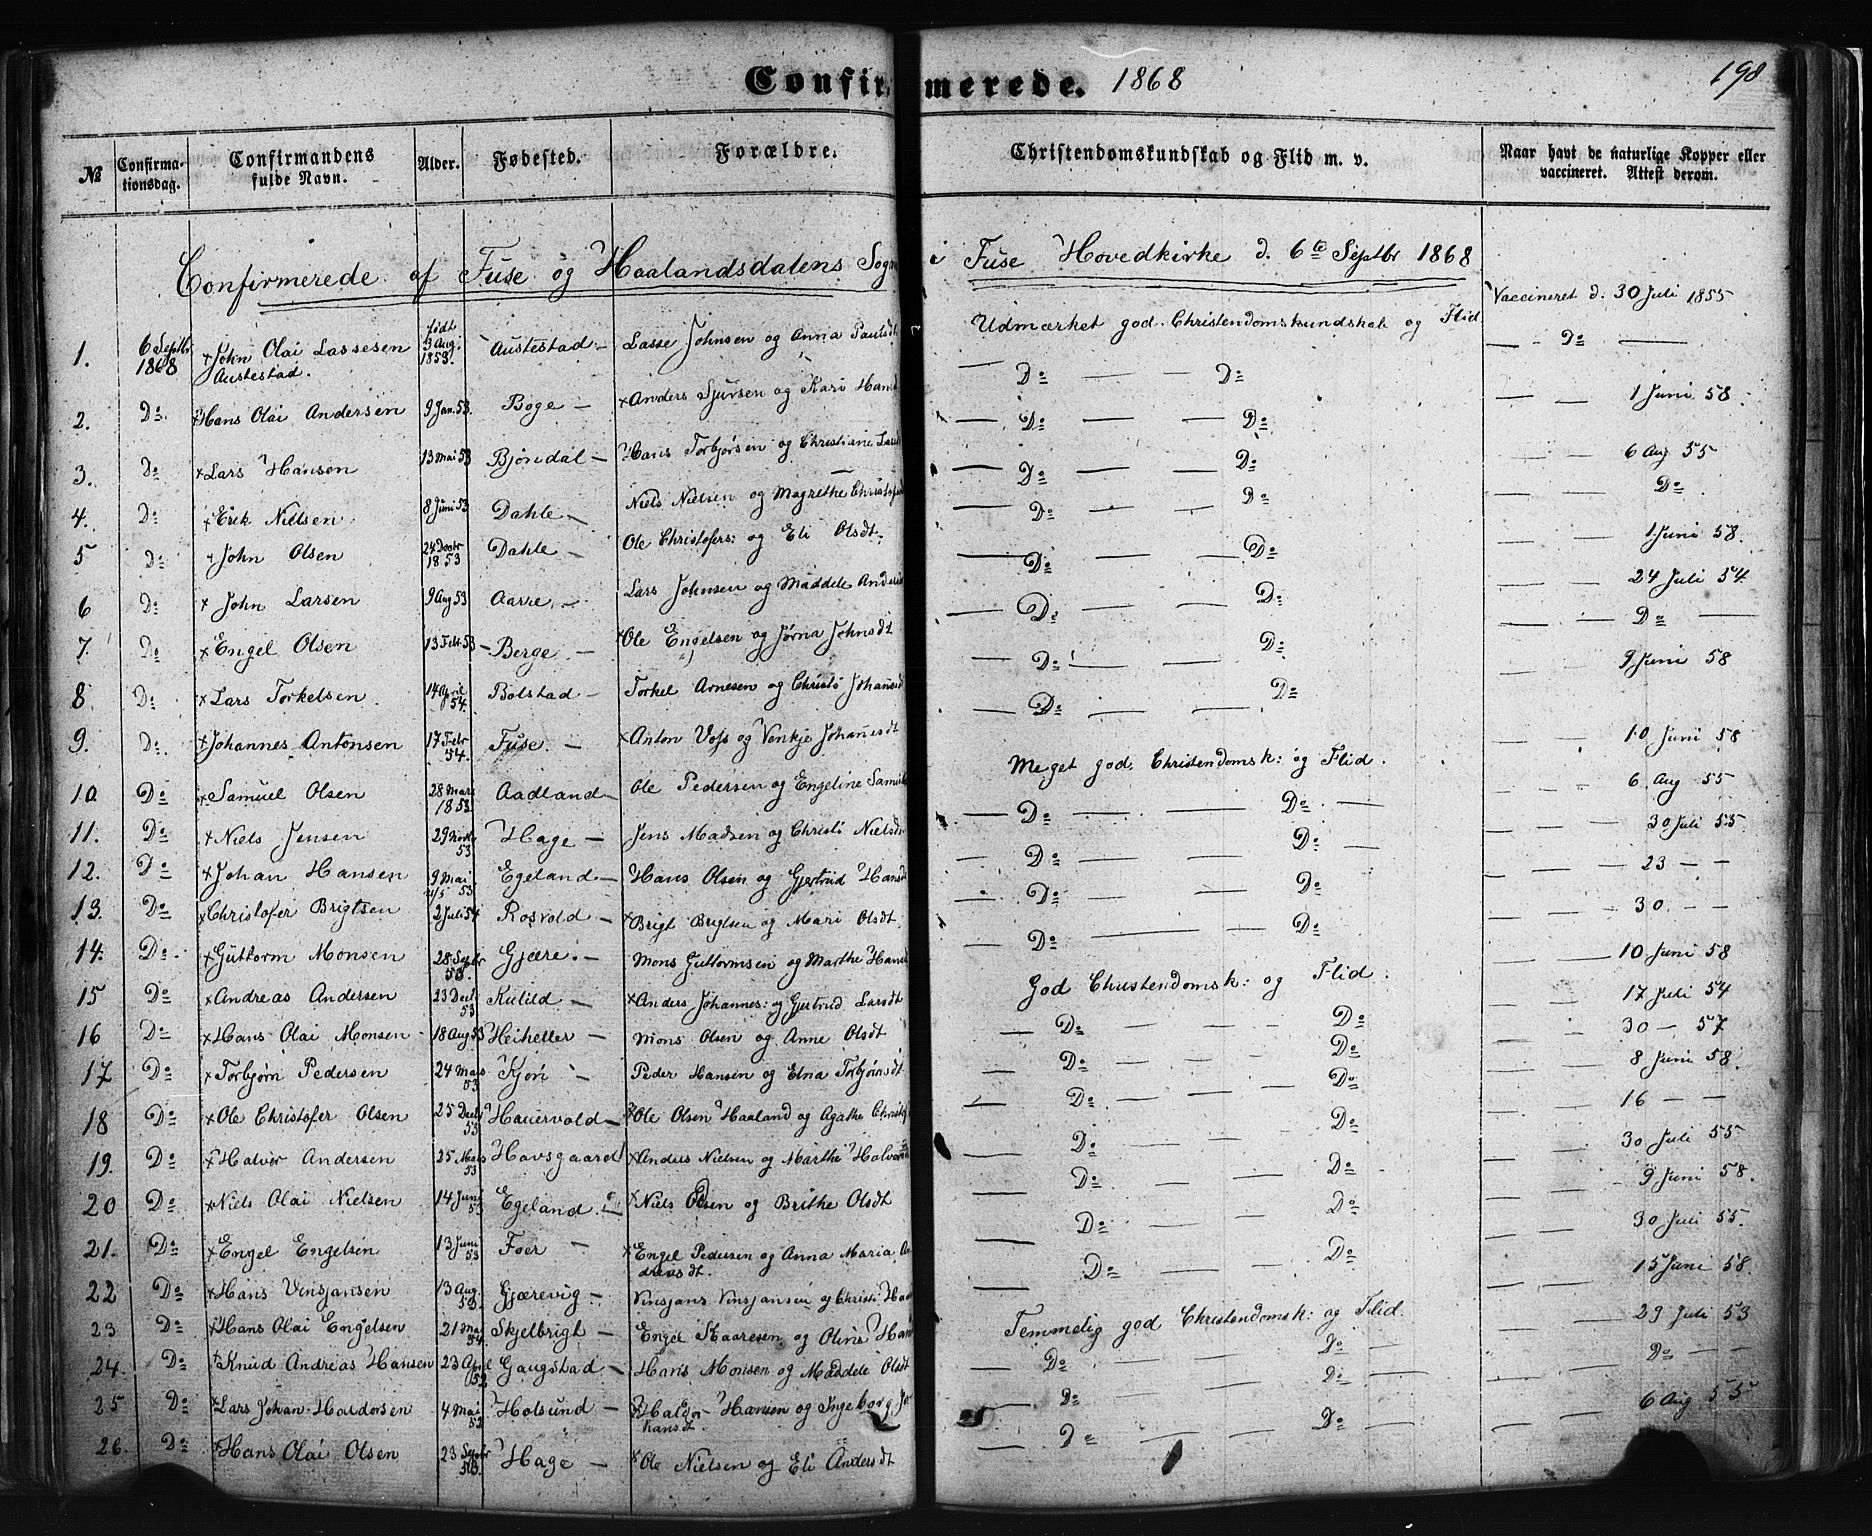 Confirmerede. 1868
198
№ Confirmationsdag. Confirmandens fulde Navn. Alder. Fødested. Forældre. Christendomskundskab og Flid m. v. Naar havt de naturlige Kopper eller vaccineret. Attest derom.
Confirmerede af Fuse og Haalandsdalens Sogn i Fuse Hovedkirke d. 6te Septbr 1868
1. 6 Septbr 1868 John Olai Lassesen Austestad. født 3 Aug. 1853. Austestad – Lasse Johnsen og Anna Paulsdt Udmærket god Christendomskundskab og Flid Vaccineret d. 30 Juli 1855
2. Do Hans Olai Andersen 9 Jan. 53. Boge – Anders Sjursen og Kari Hansd — Do — — Do — — Do —
3. Do Lars Hansen 13 Mai 53 Bjøndal – Hans Torbjørsen og Christiane Lars — Do — — Do — — 1 Juni 58.
4. Do Erik Nielsen 8 Juni 53 Dahle – Niels Nielsen og Magrethe Christofers — Do — — Do — — 6 Aug 55
5 Do John Olsen 24 Decbr 1853 Dahle – Ole Christofers: og Eli Olsdt. — Do — — Do — — Do
6 Do John Larsen 9 Aug 53 Aarre – Lars Johnsen og Maddele Anders — Do — — Do — — 1 Juni 58.
7. Do Engel Olsen 13 Febr 53 – Berge – Ole Engelsen og Jørna Johnsdt — Do — — Do — — 24 Juli 54
8 Do Lars Torkelsen 14 April 54. Bolstad – Torkel Arnesen og Christi Johanesd — Do — — Do — — Do —
9. Do Johannes Antonsen 17 Febr 54. Fuse. – Anton Voss og Venkje Johanesdt — Do — — Do — — 9 Juni 58
10. Do Samuel Olsen 28 Mars 1853 Aadland – Ole Pedersen og Engeline Samuels Meget god Christendomsk: og Flid. — 10 Juni 58
11. Do Niels Jensen 29 Novbr 53 Hage – Jens Madsen og Christi Nielsd — Do — — Do — — 6. Aug 55
12. Do Johan Hansen 9 Mai 53 Egeland – Hans Olsen og Gjertrud Hansd — Do — — Do — — 30 Juli 55
13. Do Christofer Brigtsen 2 Juli 54 Rosvold – Brigt Brigtsen og Mari Olsdt — Do — — Do — — 23 – –
14. Do Guttorm Monsen 28 Septbr 53. Gjære. – Mons Guttormsen og Marthe Hansd — Do — — Do — — 30. – –
15 Do Andreas Andersen 23 Decb 53 Kulild – Anders Johannes: og Gjertrud Larsdt God Christendomsk: og Flid. — 10 Juni 58
16 Do Hans Olai Monsen 18 Aug 53 Heiheller – Mons Olsen og Anne Olsdt — Do — — Do — — 17 Juli 54
17 Do Torbjørn Pedersen 24 Mars 53 Kjøn – Peder Hansen og Elna Torbjørnsdt — Do — — Do — — 30 – 57
18 Do Ole Christofer Olsen 25 Decb 53 Hauervold – Ole Olsen Haaland og Agathe Christof — Do — — Do — — 8 Juni 58.
19. Do Halvor Andersen 25 Mars 53 Havsgaard Anders Nielsen og Marthe Halvors — Do — — Do — — 16 – –
20 Do Niels Olai Nielsen 14 Juni 53 Egeland. – Niels Olsen og Brithe Olsdt — Do — — Do — — 30 Juli 55
21. Do Engel Engelsen 13 Juni 53 Foer – Engel Pedersen og Anna Maria Andreasdt. — Do — — Do — — 9 Juni 58.
22 Do Hans Vinsjansen 13 Aug 53. Gjærevig – Vinsjans Vinsjansen og Christi Ha — Do — — Do — — 30 Juli 55.
23 Do Hans Olai Engelsen 21 Mai 54 Skjelbrigt – Engel Haaresen og Olina Hans Temmelig god Christendomsk: og Flid. — 15 Juni 58.
24. Do Knud Andreas Hansen 23 April 52 Gaugstad – Hans Monsen og Maddele Olsdt — Do — — Do — — 29 Juli 53
25 Do Lars Johan Haldorsen 4 Mai 52 Holsund – Haldor Hansen og Ingeborg Johansdt. — Do — — Do — — Do – –
26. Do Hans Olai Olsen 23 Septbr 53. Hage – Ole Nielsen og Eli Andersdt — Do — — Do — — 6 Aug 55